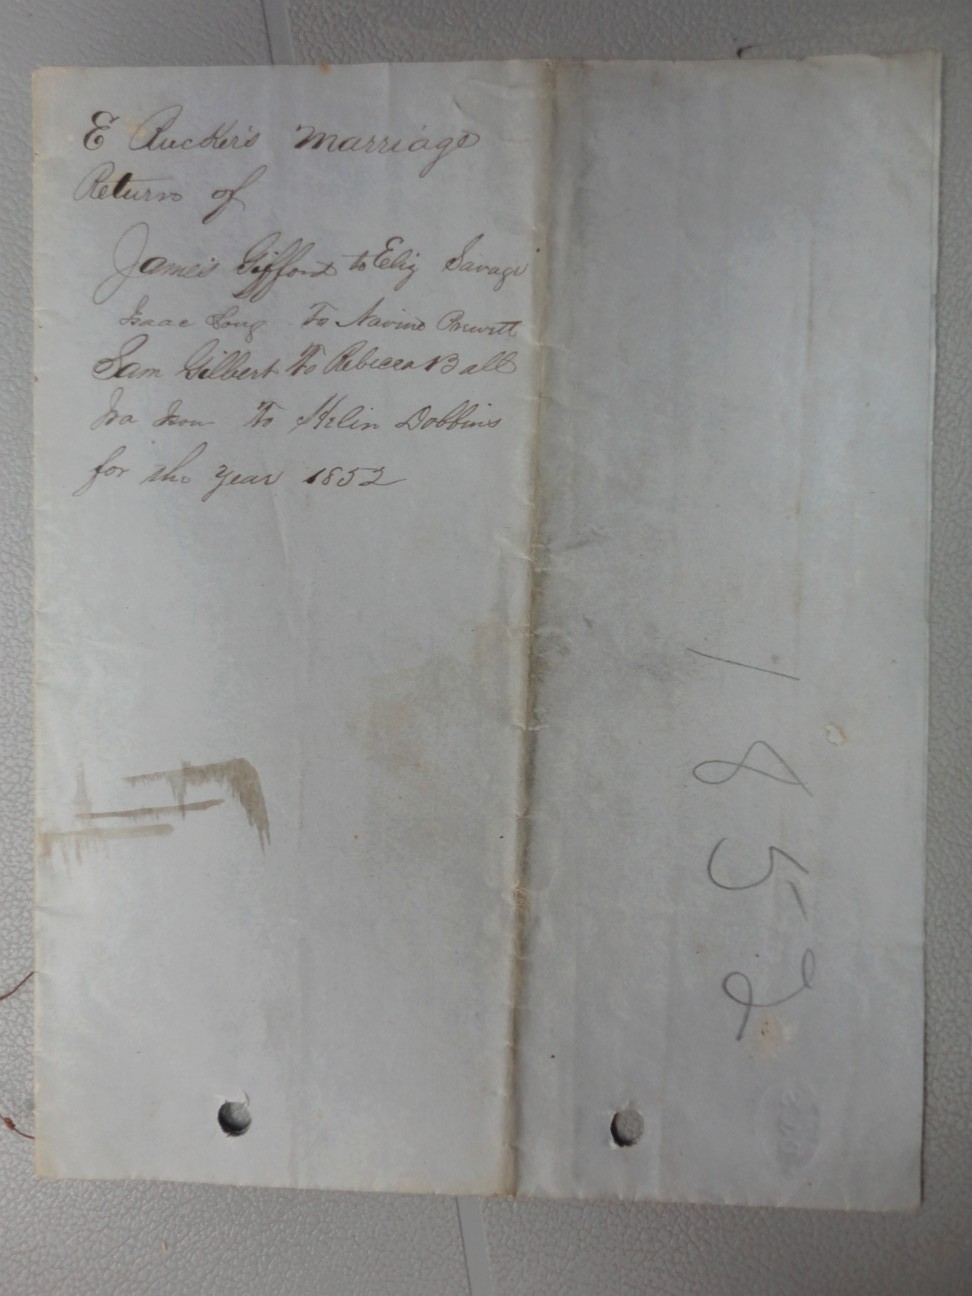 E Rucker's Marriage
Return of
James Gifford to Eliz Savage
Isaac Long To Navino Pruvitt
Sam Gilbert To Rebecca Ball
Ira Ison To Helin Dobbins
for the year 1852
1852